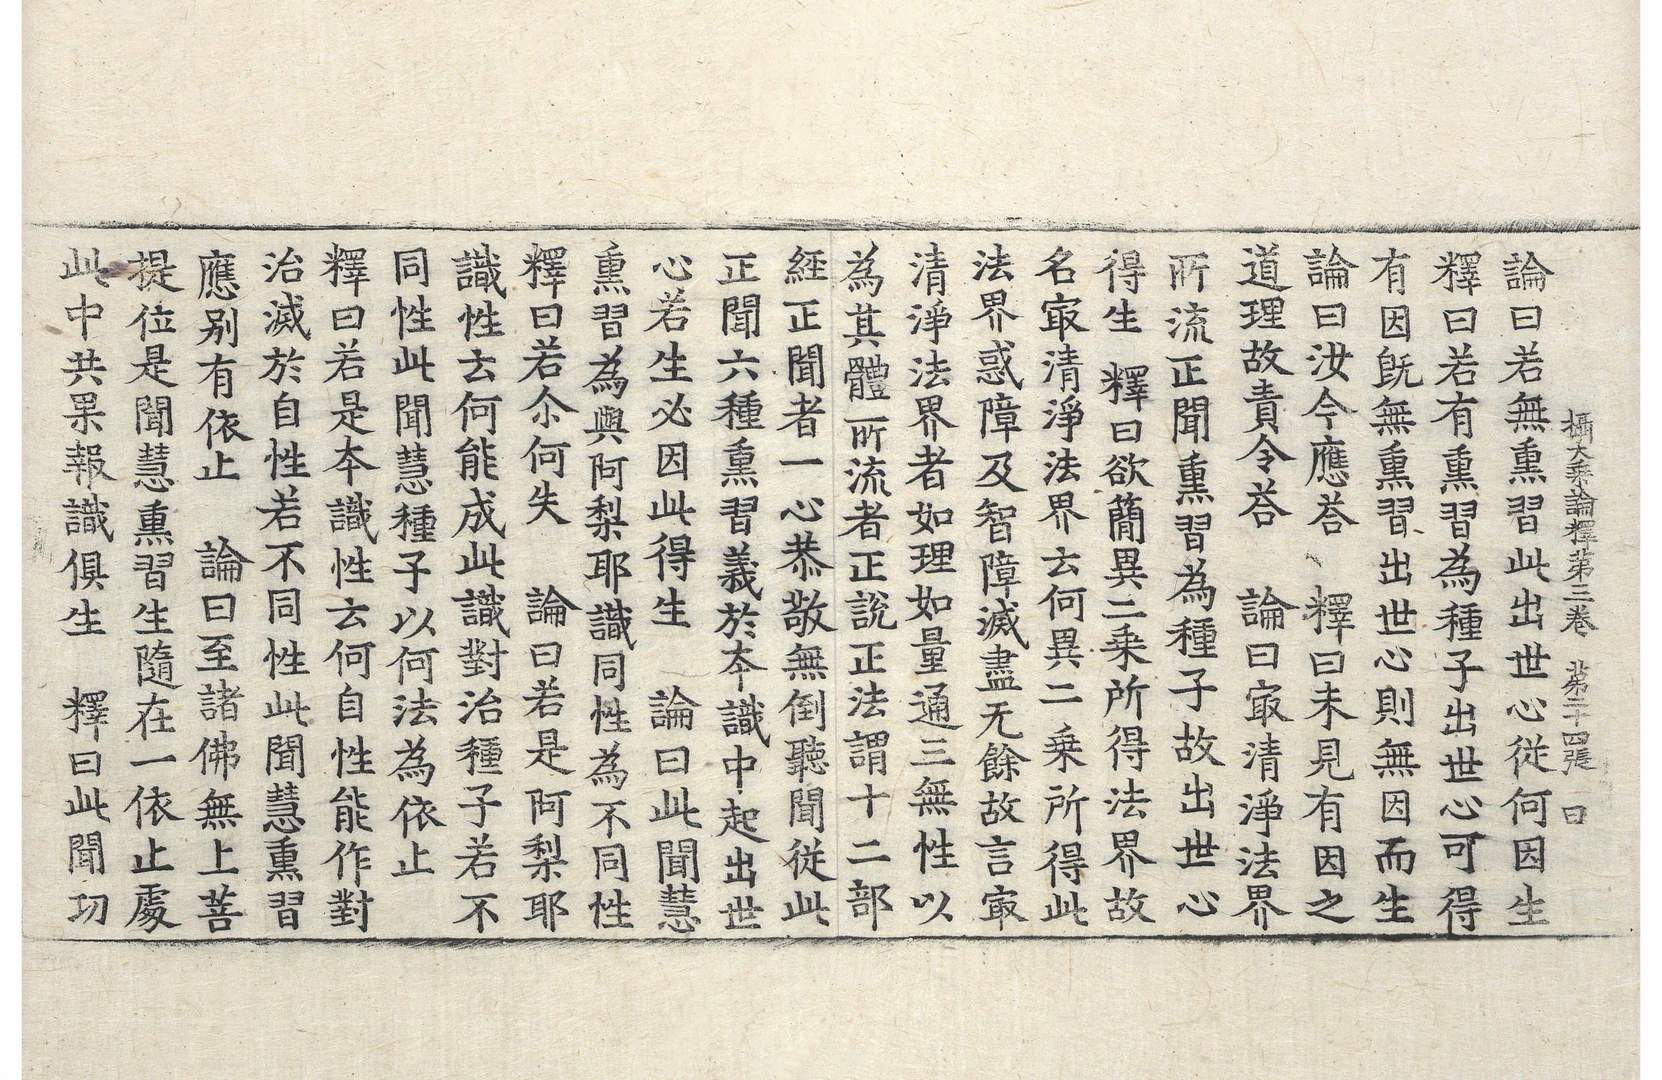 攝大乗論釋第三卷　第二十四張　曰
論曰若無熏習此出世心従何因生
釋曰若有熏習為種子出世心可得
有因旣無熏習出世心則無因而生
論曰汝今應荅　釋曰未見有因之
道理故責令荅　論曰㝡清淨法界
所流正聞熏習為種子故出世心
得生　釋曰欲簡異二乗所得法界故
名㝡清淨法界云何異二乗所得此
法界惑障及智障滅盡无餘故言㝡
清淨法界者如理如量通三無性以
為其體所流者正說正法謂十二部
經正聞者一心恭敬無倒聽聞従此
正聞六種熏習義於本識中起出世
心若生必因此得生　論曰此聞慧
熏習為與阿梨耶識同性為不同性
釋曰若尒何失　論曰若是阿梨耶
識性云何能成此識對治種子若不
同性此聞慧種子以何法為依止
釋曰若是本識性云何自性能作對
治滅於自性若不同性此聞慧熏習
應别有依止　論曰至諸佛無上菩
提位是聞慧熏習生隨在一依止處
此中共果報識俱生　釋曰此聞功